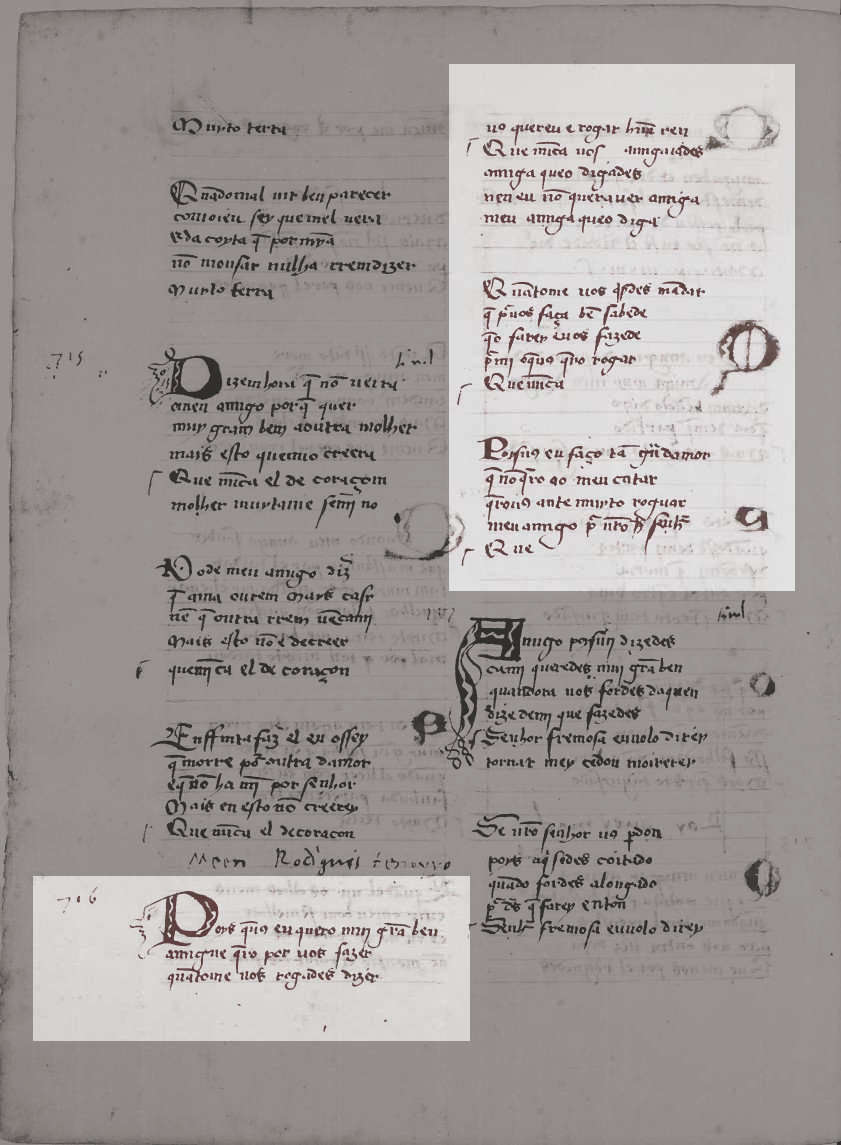 Muyto terra
Quādomal mr ben parecer
comoieu sey quemel uera
eda coyta q̄ por mȳa
nō mousar nulha rremdizer
Muyto terra
715
Dizemhora q̄ nō uerra
omeu amigo porq̄ quer
muy gram bem aoutra molher
mais esto quemio creera
Que nūca el de coraçom
molher muytame semī no
Pode meu amigo diz̄
q̄ ama outrem mays casr
nē q̄ outra rrem uēcamī
Mais esto nō e decreer
quenūca el de coraçon
Enffinta faz̄ el eu ossey
q̄ morre por outra damor
eq̄ nō ha mī por senhor
Mais en esto nō creerey
Que nūca el decoraçon
Meen Rodriguis tenoyro
716
Poys q̄uꝯ eu quero mui grā ben
amigue q̄ro por uos fazer
quātome uos rogades dizer
uꝯ quereu e rogar hūa ren
Que nūca uos amigaiades
amiga queo digades
nen eu nō queyauer amiga
meu amigo queo diga
Quātome uos q̄sdes mādar
q̄ p̄uos faça bē sabede
q̄o farey euos fazede
p̄mi oq̄uꝯ q̄ro rogar
Que nūca
Poisuꝯ eu faço tā grā damor
q̄ nō q̄ro ao meu catar
q̄rouꝯ ante muyto roguar
meu amigo p̄ nr̄o senhr̄
Que
717
Amigo poisuꝯ dizedes
cami queredes mui grā ben
quandora uos fordes daquen
dizedemi que fazedes
Senhor fremosa euuolo direy
tornar mey cedou moirerey
Se nr̄o senhor uꝯ p̄don
poys aq̄ sodes coitado
quādo fordes alongado
p̄ ds̄ q̄ farey enton
Senhr̄ fremosa euuolo direy